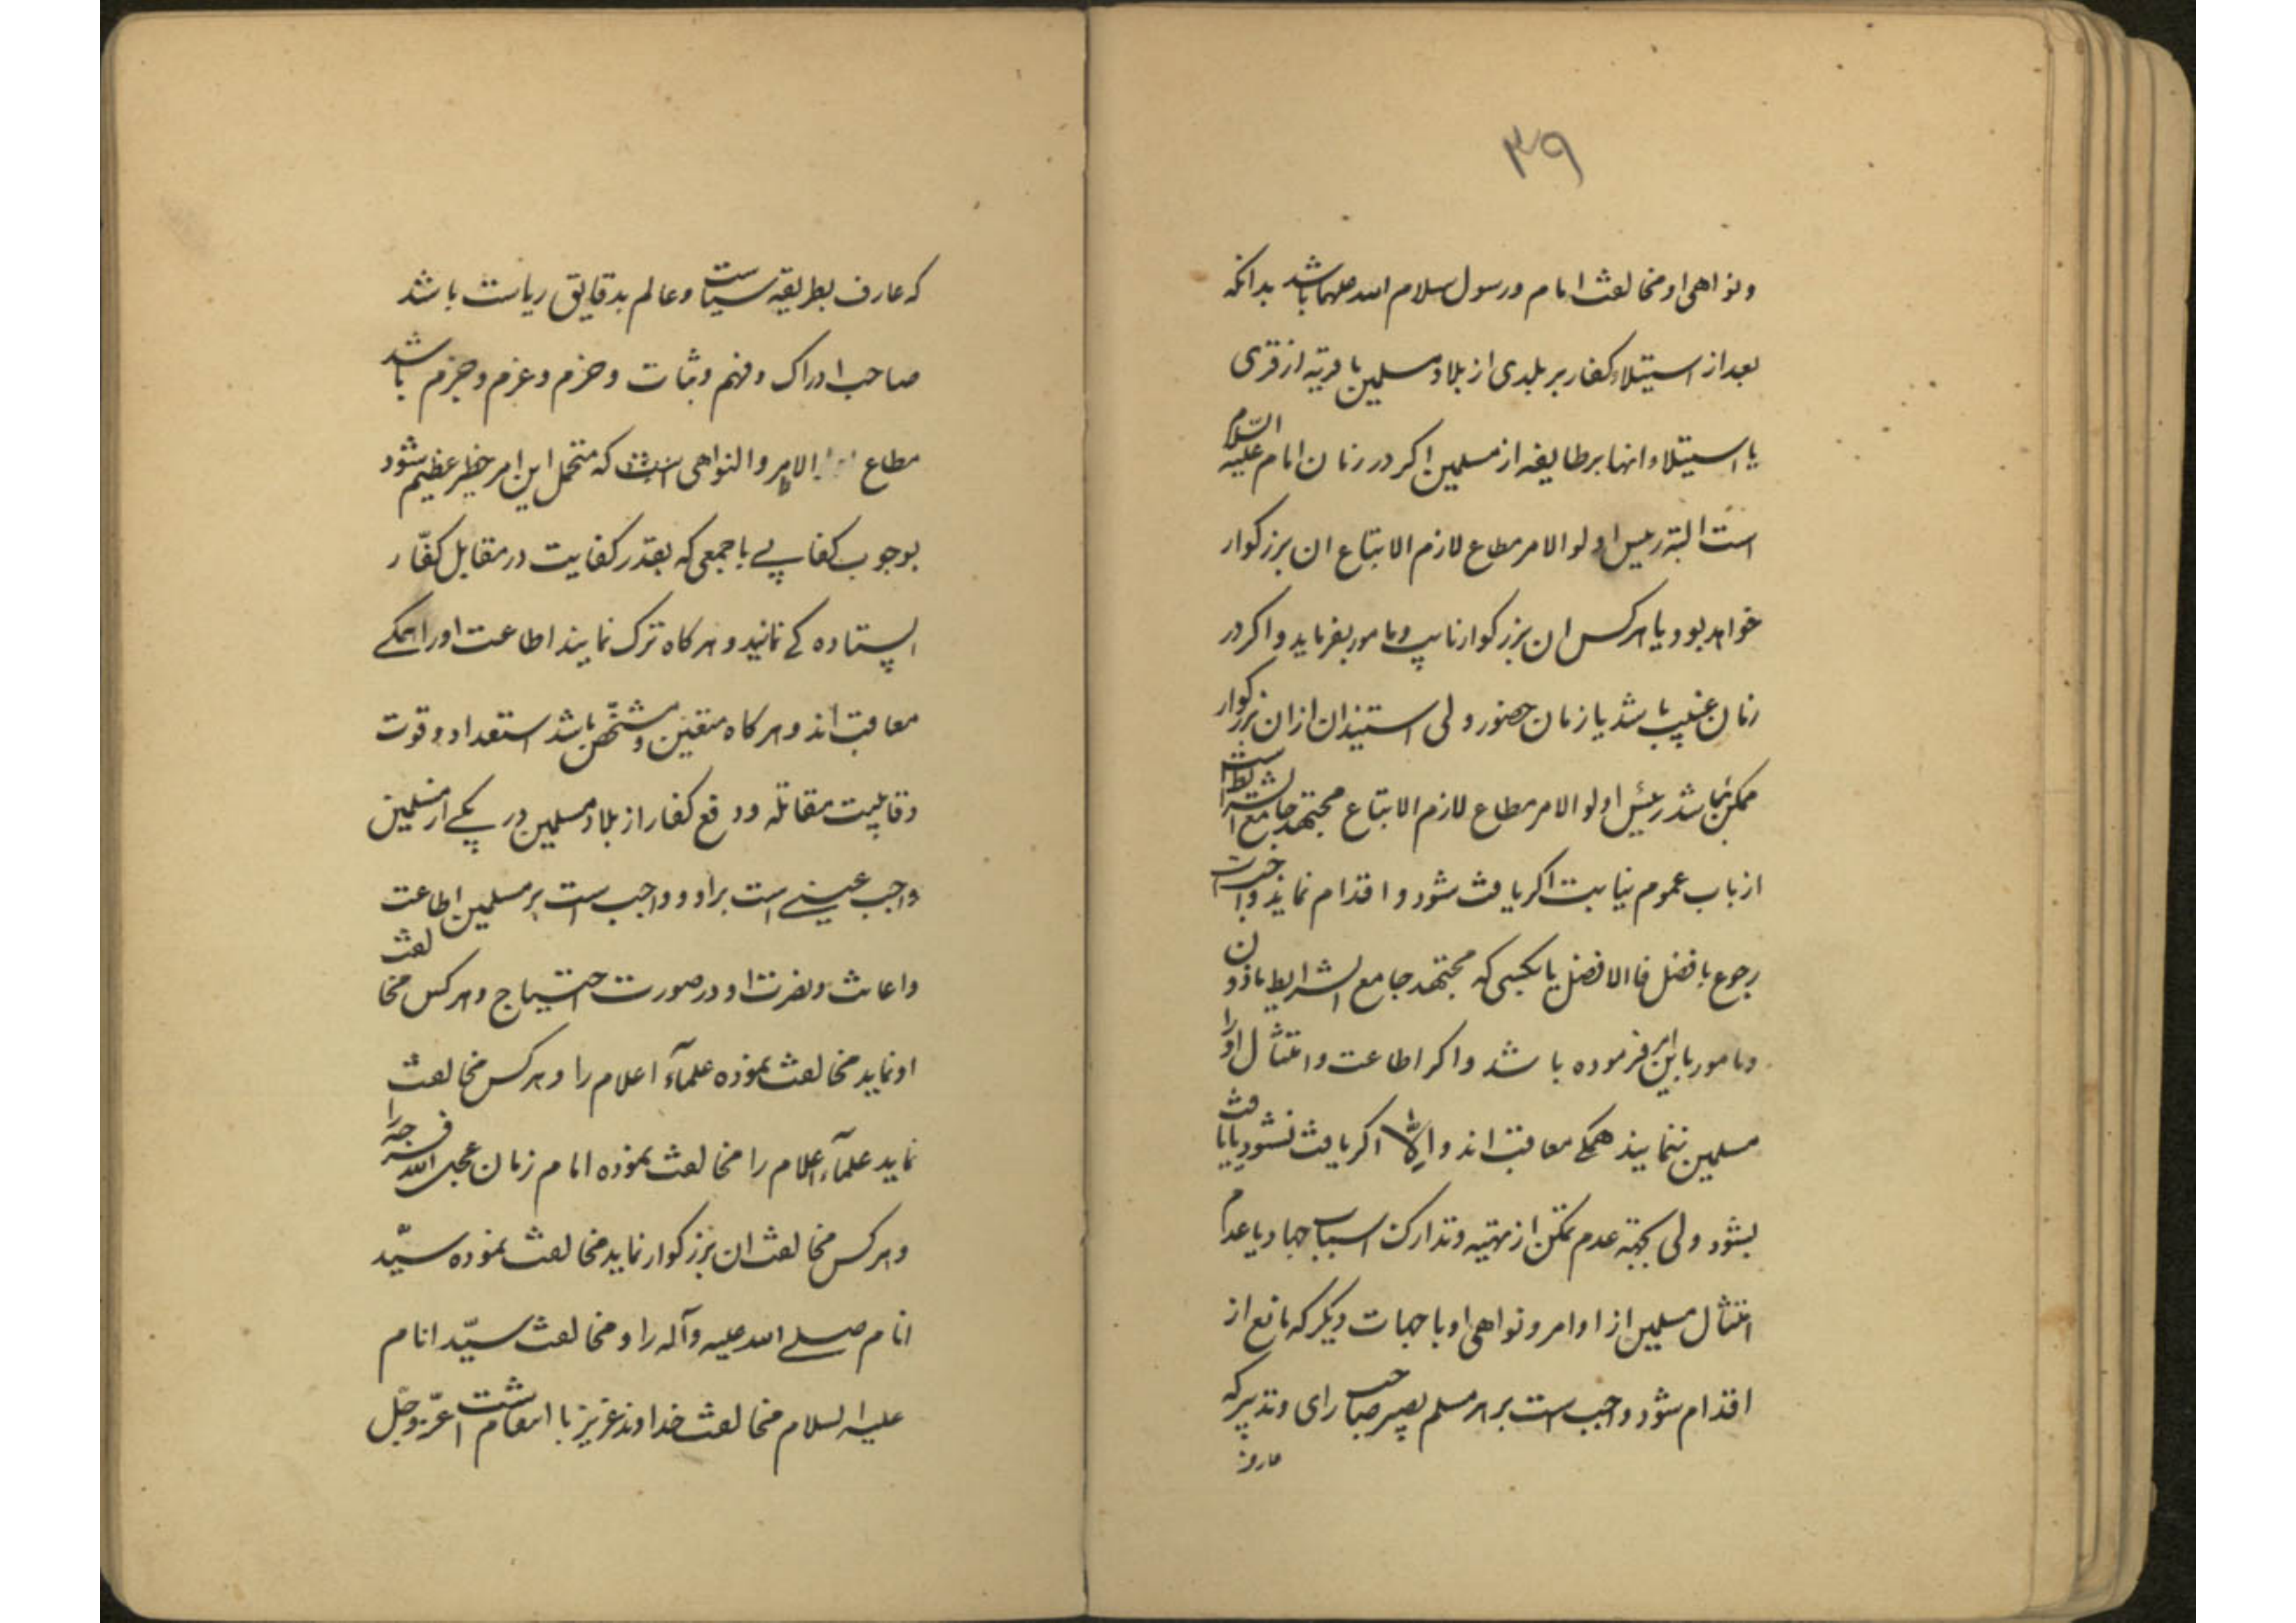 ۳۹
ونواهی او مخالفت امام و رسول سلام الله علیهما باشد بدانکه
بعد از استیلاء کفار بر بلدی از بلاد مسلمین یا قریه از قری
یا استیلاء انها بر طایفه از مسلمین اکر در زمان امام علیه السّلام
است البته رئیس اولو الامر مطاع لازم الاتباع ان بزرکوار
خواهد بود یا هر کس ان بزرکوار نایب و مامور بفرماید و اکر در
زمان غیبت باشد یا زمان حضور ولی استیذان از ان بزرکوار
ممکن نباشد رئیس اولو الامر مطاع لازم الاتباع مجتهد جامع الشرایط است
از باب عموم نیابت اکر یافت شود و اقدام نماید واجب است
رجوع بافضل فالافضل یا بکسی که مجتهد جامع الشرایط ماذون
و مامور باین امر فرموده باشد و اکر اطاعت و امتثال او را
مسلمین ننمایند همکی معاقبت اند و اِلّا اکر یافت نشود یا یافت
بشود ولی بجهة عدم تمکن از تهیه و تدارک اسباب جهاد یا عدم
امتثال مسلمین از اوامر و نواهی او یا جهات دیکر که مانع از
اقدام شود واجب است بر هر مسلم بصیر صاحب رای و تدبیر که
عارف
که عارف بطریقه سیاست و عالم بدقایق ریاست باشد
صاحب ادراک و فهم و ثبات و حزم و عزم و جزم باشد
مطاع الامر و النواهی است که متحمل این امر خطر عظیم شود
بوجوب کفایی با جمعی که بقدر کفایت در مقابل کفّار
ایستاده کی نمایند و هر کاه ترک نمایند اطاعت او را همکی
معاقبت اند و هر کاه متعین و مشخّص باشد استعداد و قوت
و قابلیت مقاتله و دفع کفار از بلاد مسلمین در یکی از مسلمین
واجب عینی است بر او و واجب است بر مسلمین اطاعت
و اعانت و نصرت او در صورت احتیاج و هر کس مخالفت
او نماید مخالفت نموده علمآء اعلام را و هر کس مخالفت
نماید علمآء اعلام را مخالفت نموده امام زمان عجل الله فرجه را
و هر کس مخالفت ان بزرکوار نماید مخالفت نموده سیّد
انام صلی الله علیه و آله را و مخالفت سیّد انام
علیه السلام مخالفت خداوند عزیز با انتقام است عزّ و جلّ